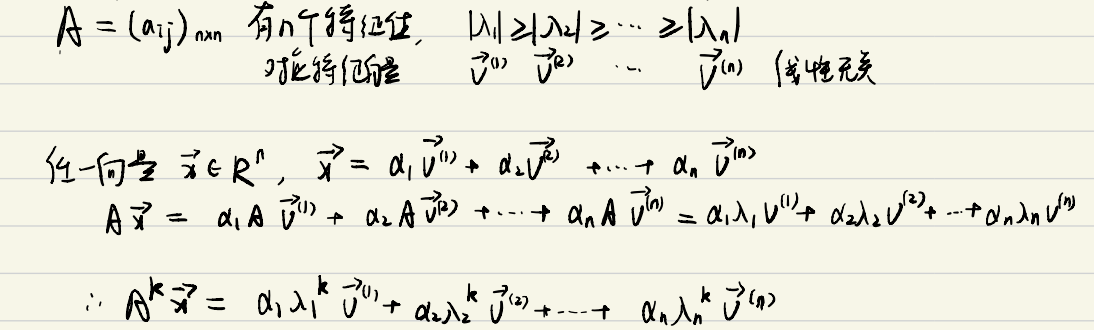 A = (aij)n×n 有n个特征值, |λ1| ≥ |λ2| ≥ ⋯ ≥ |λn|
对应特征向量 v⃗⁽¹⁾ v⃗⁽²⁾ ⋯ v⃗⁽ⁿ⁾ 线性无关
任一向量 x⃗ ∈ Rⁿ, x⃗ = α₁ v⃗⁽¹⁾ + α₂ v⃗⁽²⁾ + ⋯ + αₙ v⃗⁽ⁿ⁾
A x⃗ = α₁ A v⃗⁽¹⁾ + α₂ A v⃗⁽²⁾ + ⋯ + αₙ A v⃗⁽ⁿ⁾ = α₁λ₁ v⁽¹⁾ + α₂λ₂ v⁽²⁾ + ⋯ + αₙλₙ v⁽ⁿ⁾
∴ Aᵏ x⃗ = α₁ λ₁ᵏ v⃗⁽¹⁾ + α₂ λ₂ᵏ v⃗⁽²⁾ + ⋯ + αₙ λₙᵏ v⃗⁽ⁿ⁾